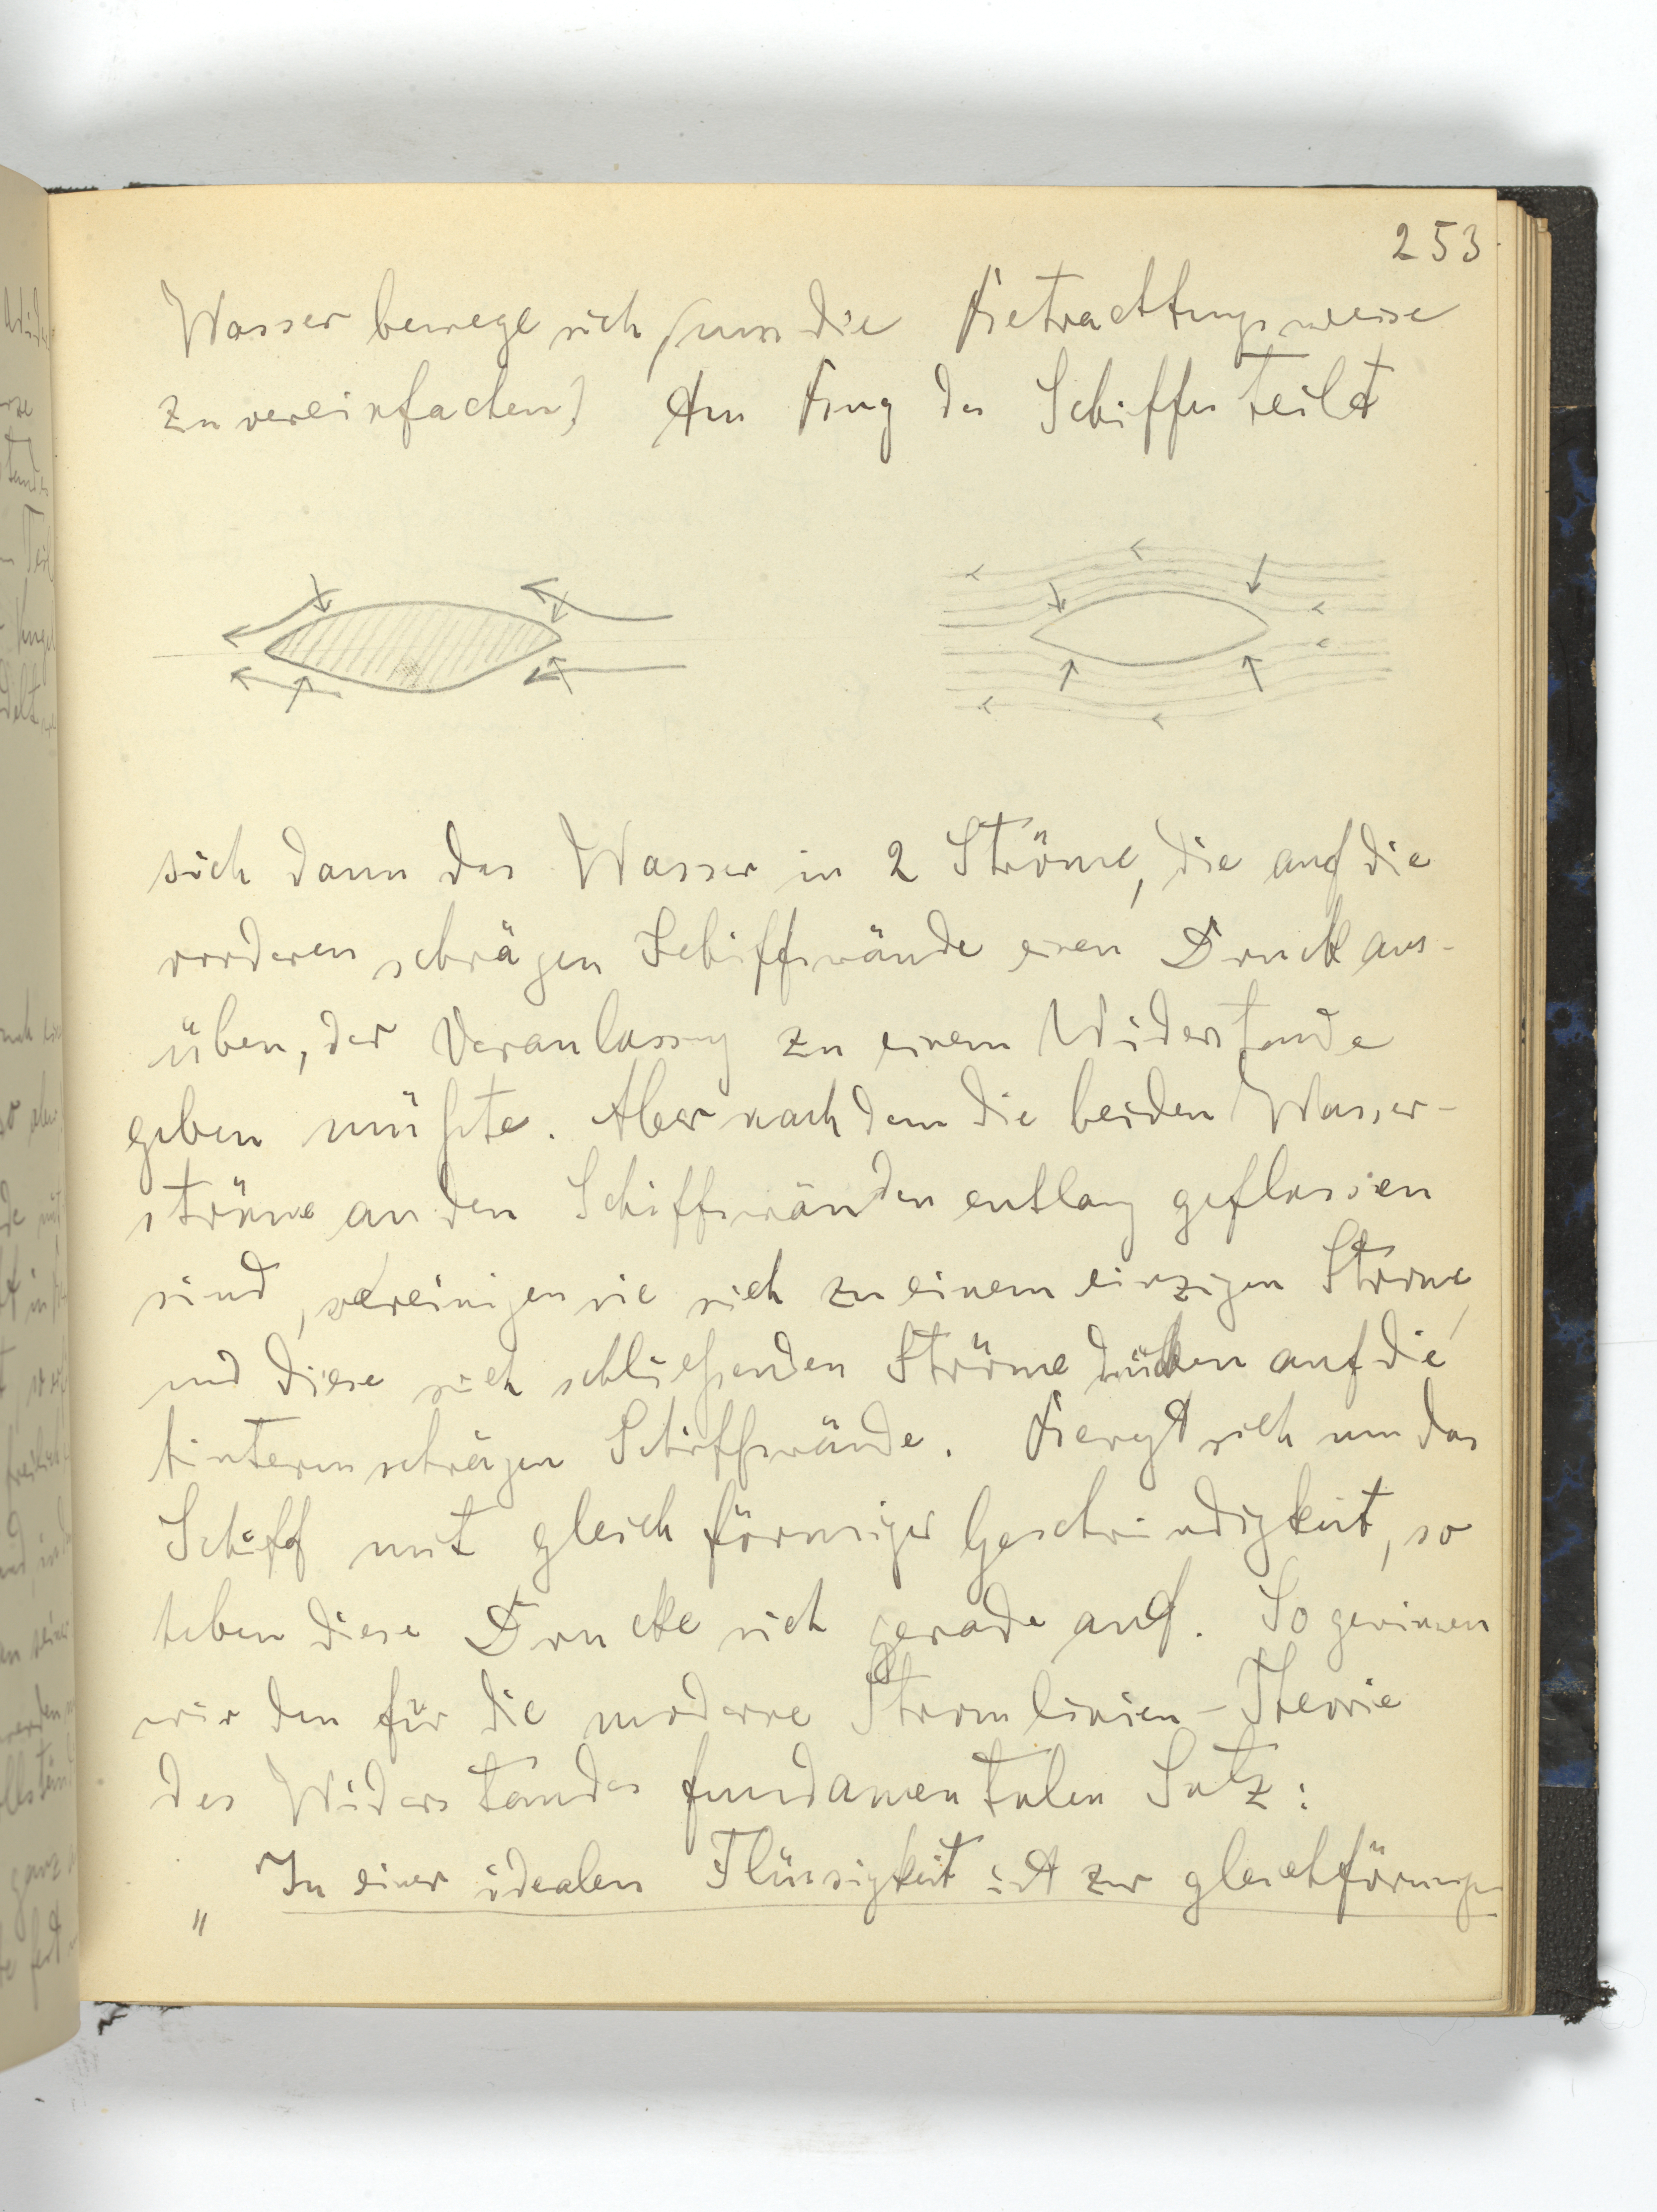 253
Wasser bewege sich (um die Betrachtungsweise
zu vereinfachen) Am Bug des Schiffes teilt
sich dann das Wasser in 2 Ströme, die auf die
vorderen schrägen Schiffswände einen Druck aus-
üben, der Veranlassung zu einem Widerstande
geben müßte. Aber nachdem die beiden Wasser-
ströme an den Schiffswänden entlang geflossen
sind, vereinigen sie sich zu einem einzigen Strome,
und diese sich schließenden Ströme drücken auf die
hinteren schrägen Schiffswände. Bewegt sich nun das
Schiff mit gleichförmiger Geschwindigkeit, so
heben diese Drucke sich gerade auf. So gewinnen
wir den für die moderne Stromlinien-Theorie
des Widerstandes fundamentalen Satz:
„In einer idealen Flüssigkeit ist zur gleichförmigen